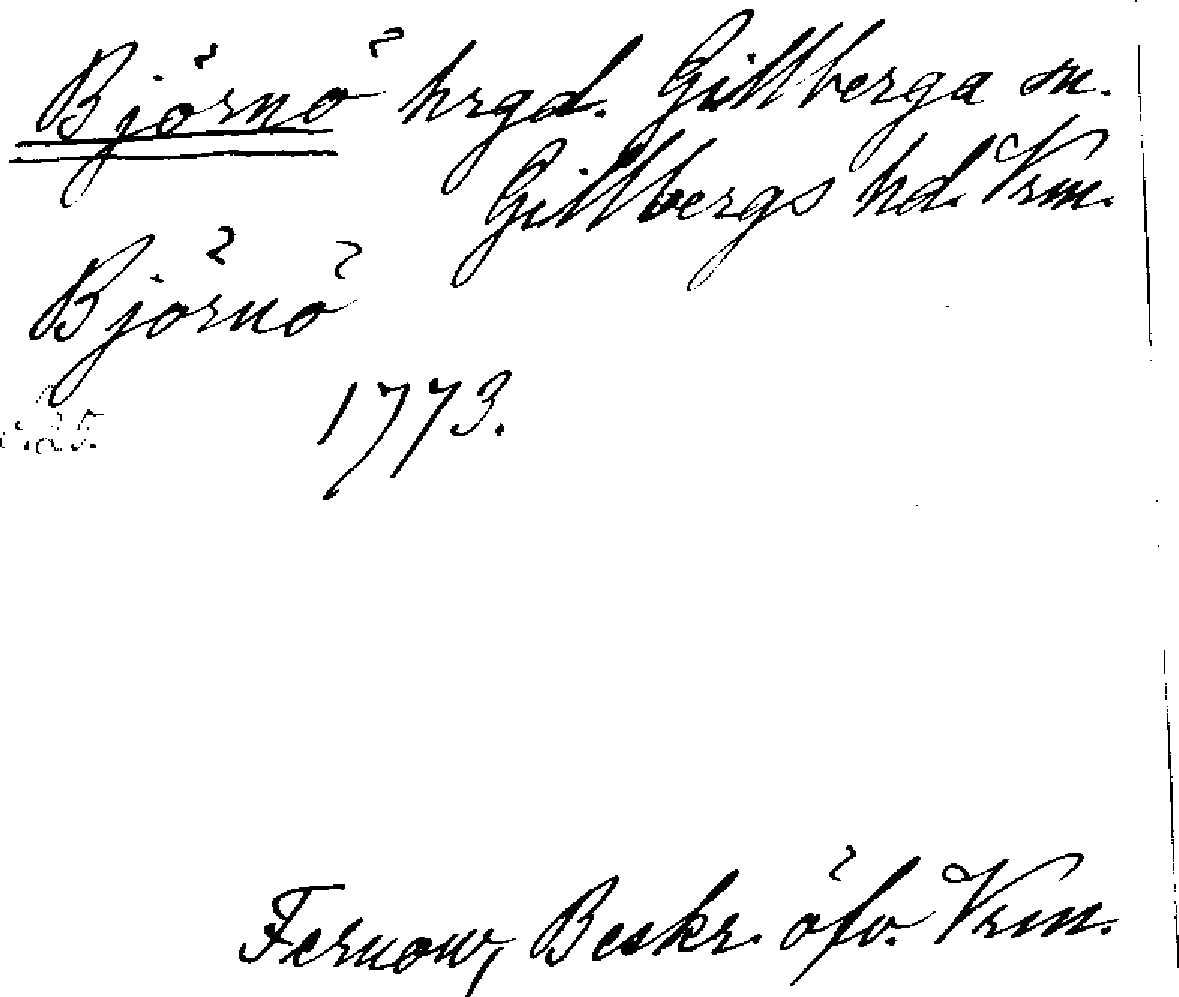 Björnö hrgd. Gillberga sn.
Gillbergs hd. Vrm.
Björnö
1773.
Fernow, Beskr. öfv. Vrm.